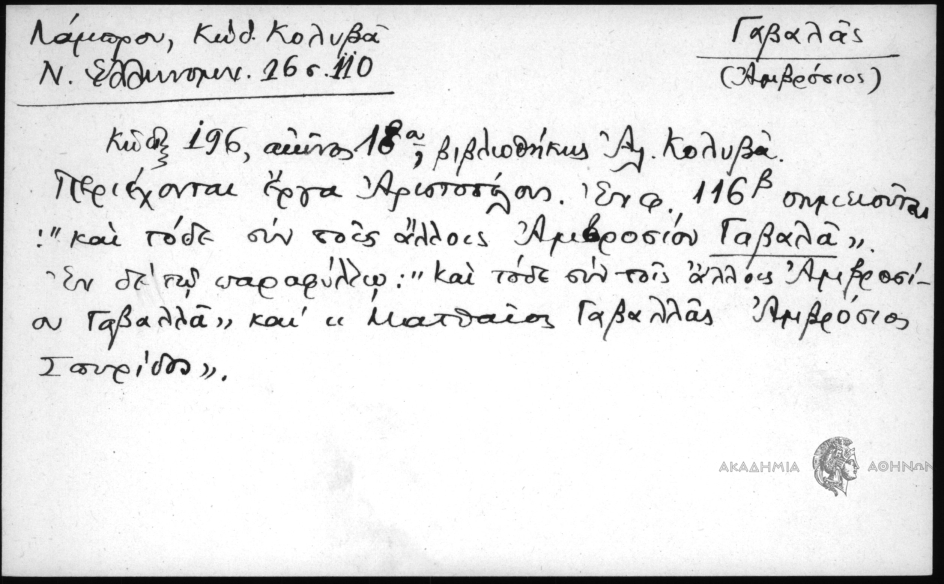 Λάμπρου, Κώδ. Κολυβᾶ
Ν. Ἑλληνομν. 16 σ. 110
Γαβαλᾶς
(Ἀμβρόσιος)
Κῶδιξ 196, αἰῶνος 18, βιβλιοθήκης Ἀλ. Κολυβᾶ.
Περιέχονται ἔργα Ἀριστοτέλους. Ἐν φ. 116β σημειοῦται
: "καὶ τόδε σὺν τοῖς ἄλλοις Ἀμβροσίου Γαβαλᾶ».
Ἐν δὲ τῷ παραφύλλῳ: "Καὶ τόδε σὺν τοῖς ἄλλοις Ἀμβροσί-
ου Γαβαλλᾶ» καὶ « Ματθαῖος Γαβαλλᾶς Ἀμβρόσιος
Σπυρίδος».
ΑΚΑΔΗΜΙΑ ΑΘΗΝΩΝ